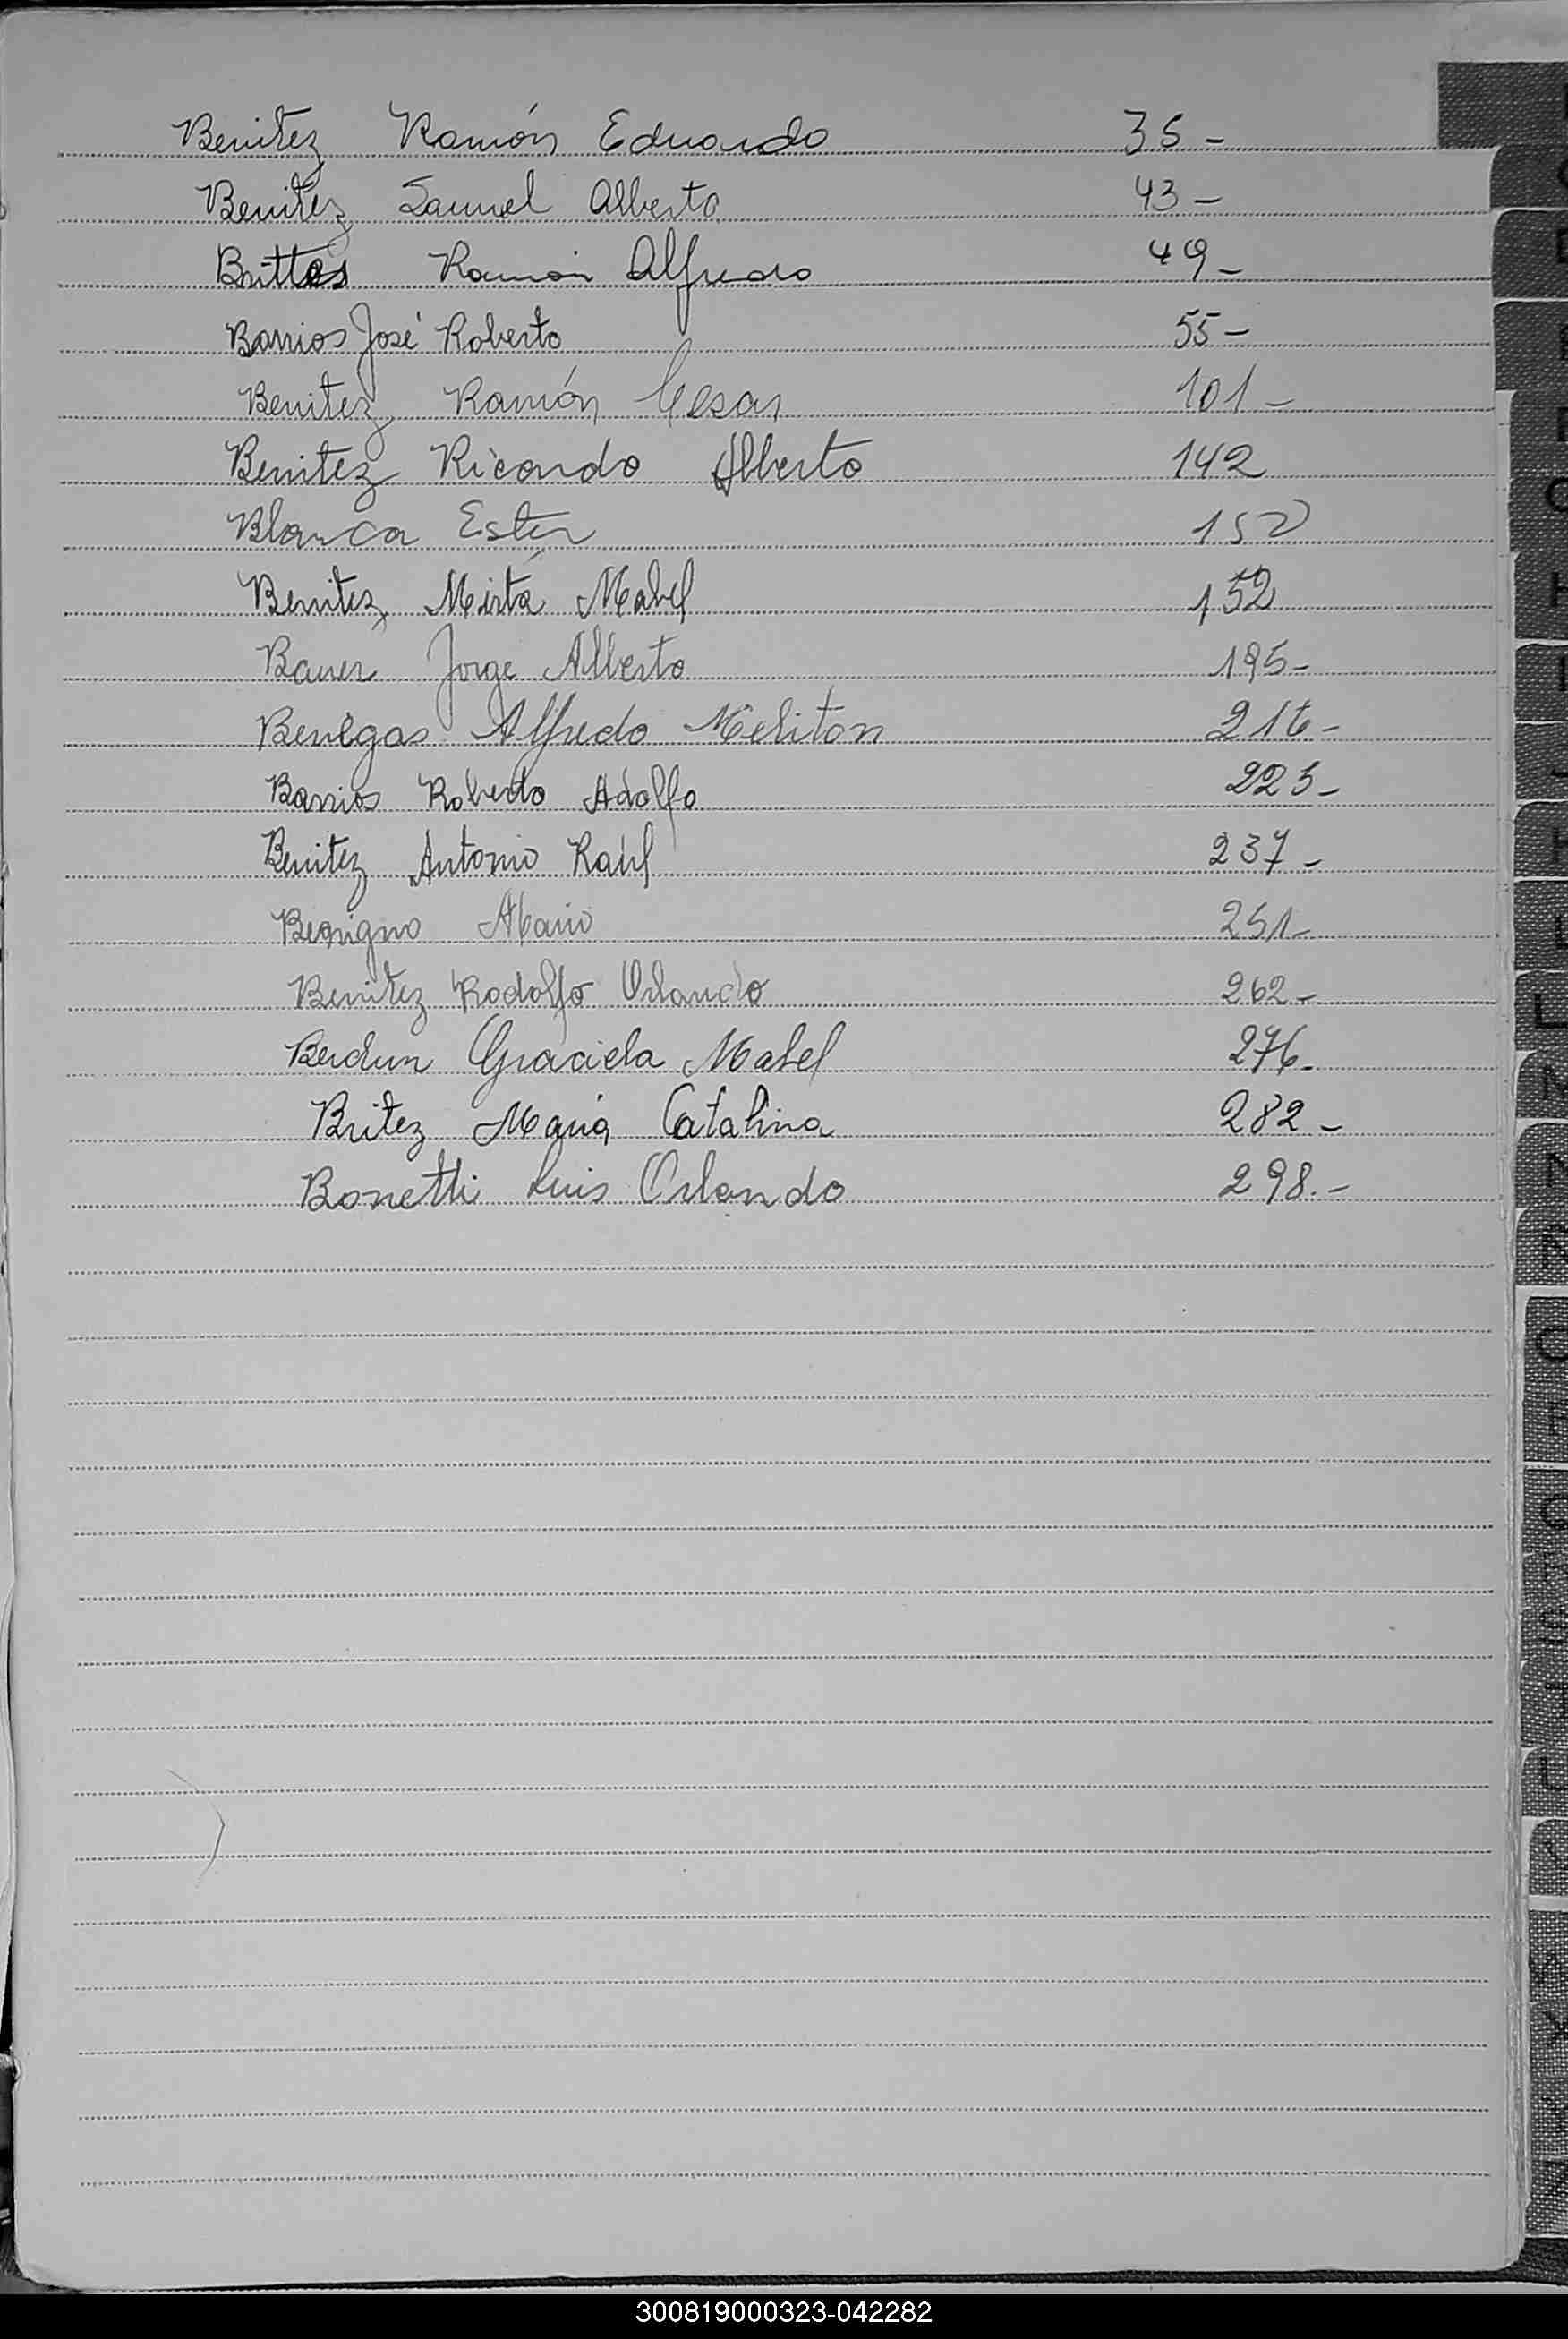 Benitez Ramón Eduardo 35 -
Benitez Samuel Alberto 43 -
Brittos Ramón Alfredo 49 -
Barrios José Roberto 55 -
Benitez Ramón Cesar 101 -
Benitez Ricardo Alberto 142
Blanca Ester 152
Benitez Mirta Mabel 152
Bauer Jorge Alberto 195 -
Benegas Alfredo Meliton 216 -
Barrios Roberto Adolfo 223 -
Benitez Antonio Raúl 237 -
Benigno Mario 251 -
Benitez Rodolfo Orlando 262 -
Berdun Graciela Mabel 276 -
Britez María Catalina 282 -
Bonetti Luis Orlando 298. -
300819000323-042282